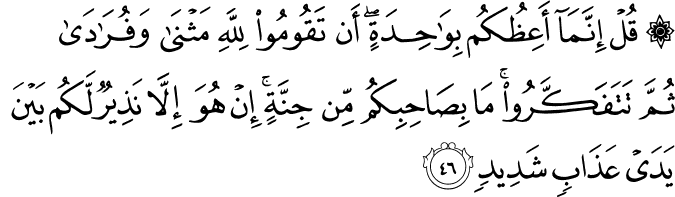 ۞ قُلْ إِنَّمَآ أَعِظُكُم بِوَٰحِدَةٍ ۖ أَن تَقُومُوا۟ لِلَّهِ مَثْنَىٰ وَفُرَٰدَىٰ
ثُمَّ تَتَفَكَّرُوا۟ ۚ مَا بِصَاحِبِكُم مِّن جِنَّةٍ ۚ إِنْ هُوَ إِلَّا نَذِيرٌ لَّكُم بَيْنَ
يَدَىْ عَذَابٍ شَدِيدٍ ٤٦